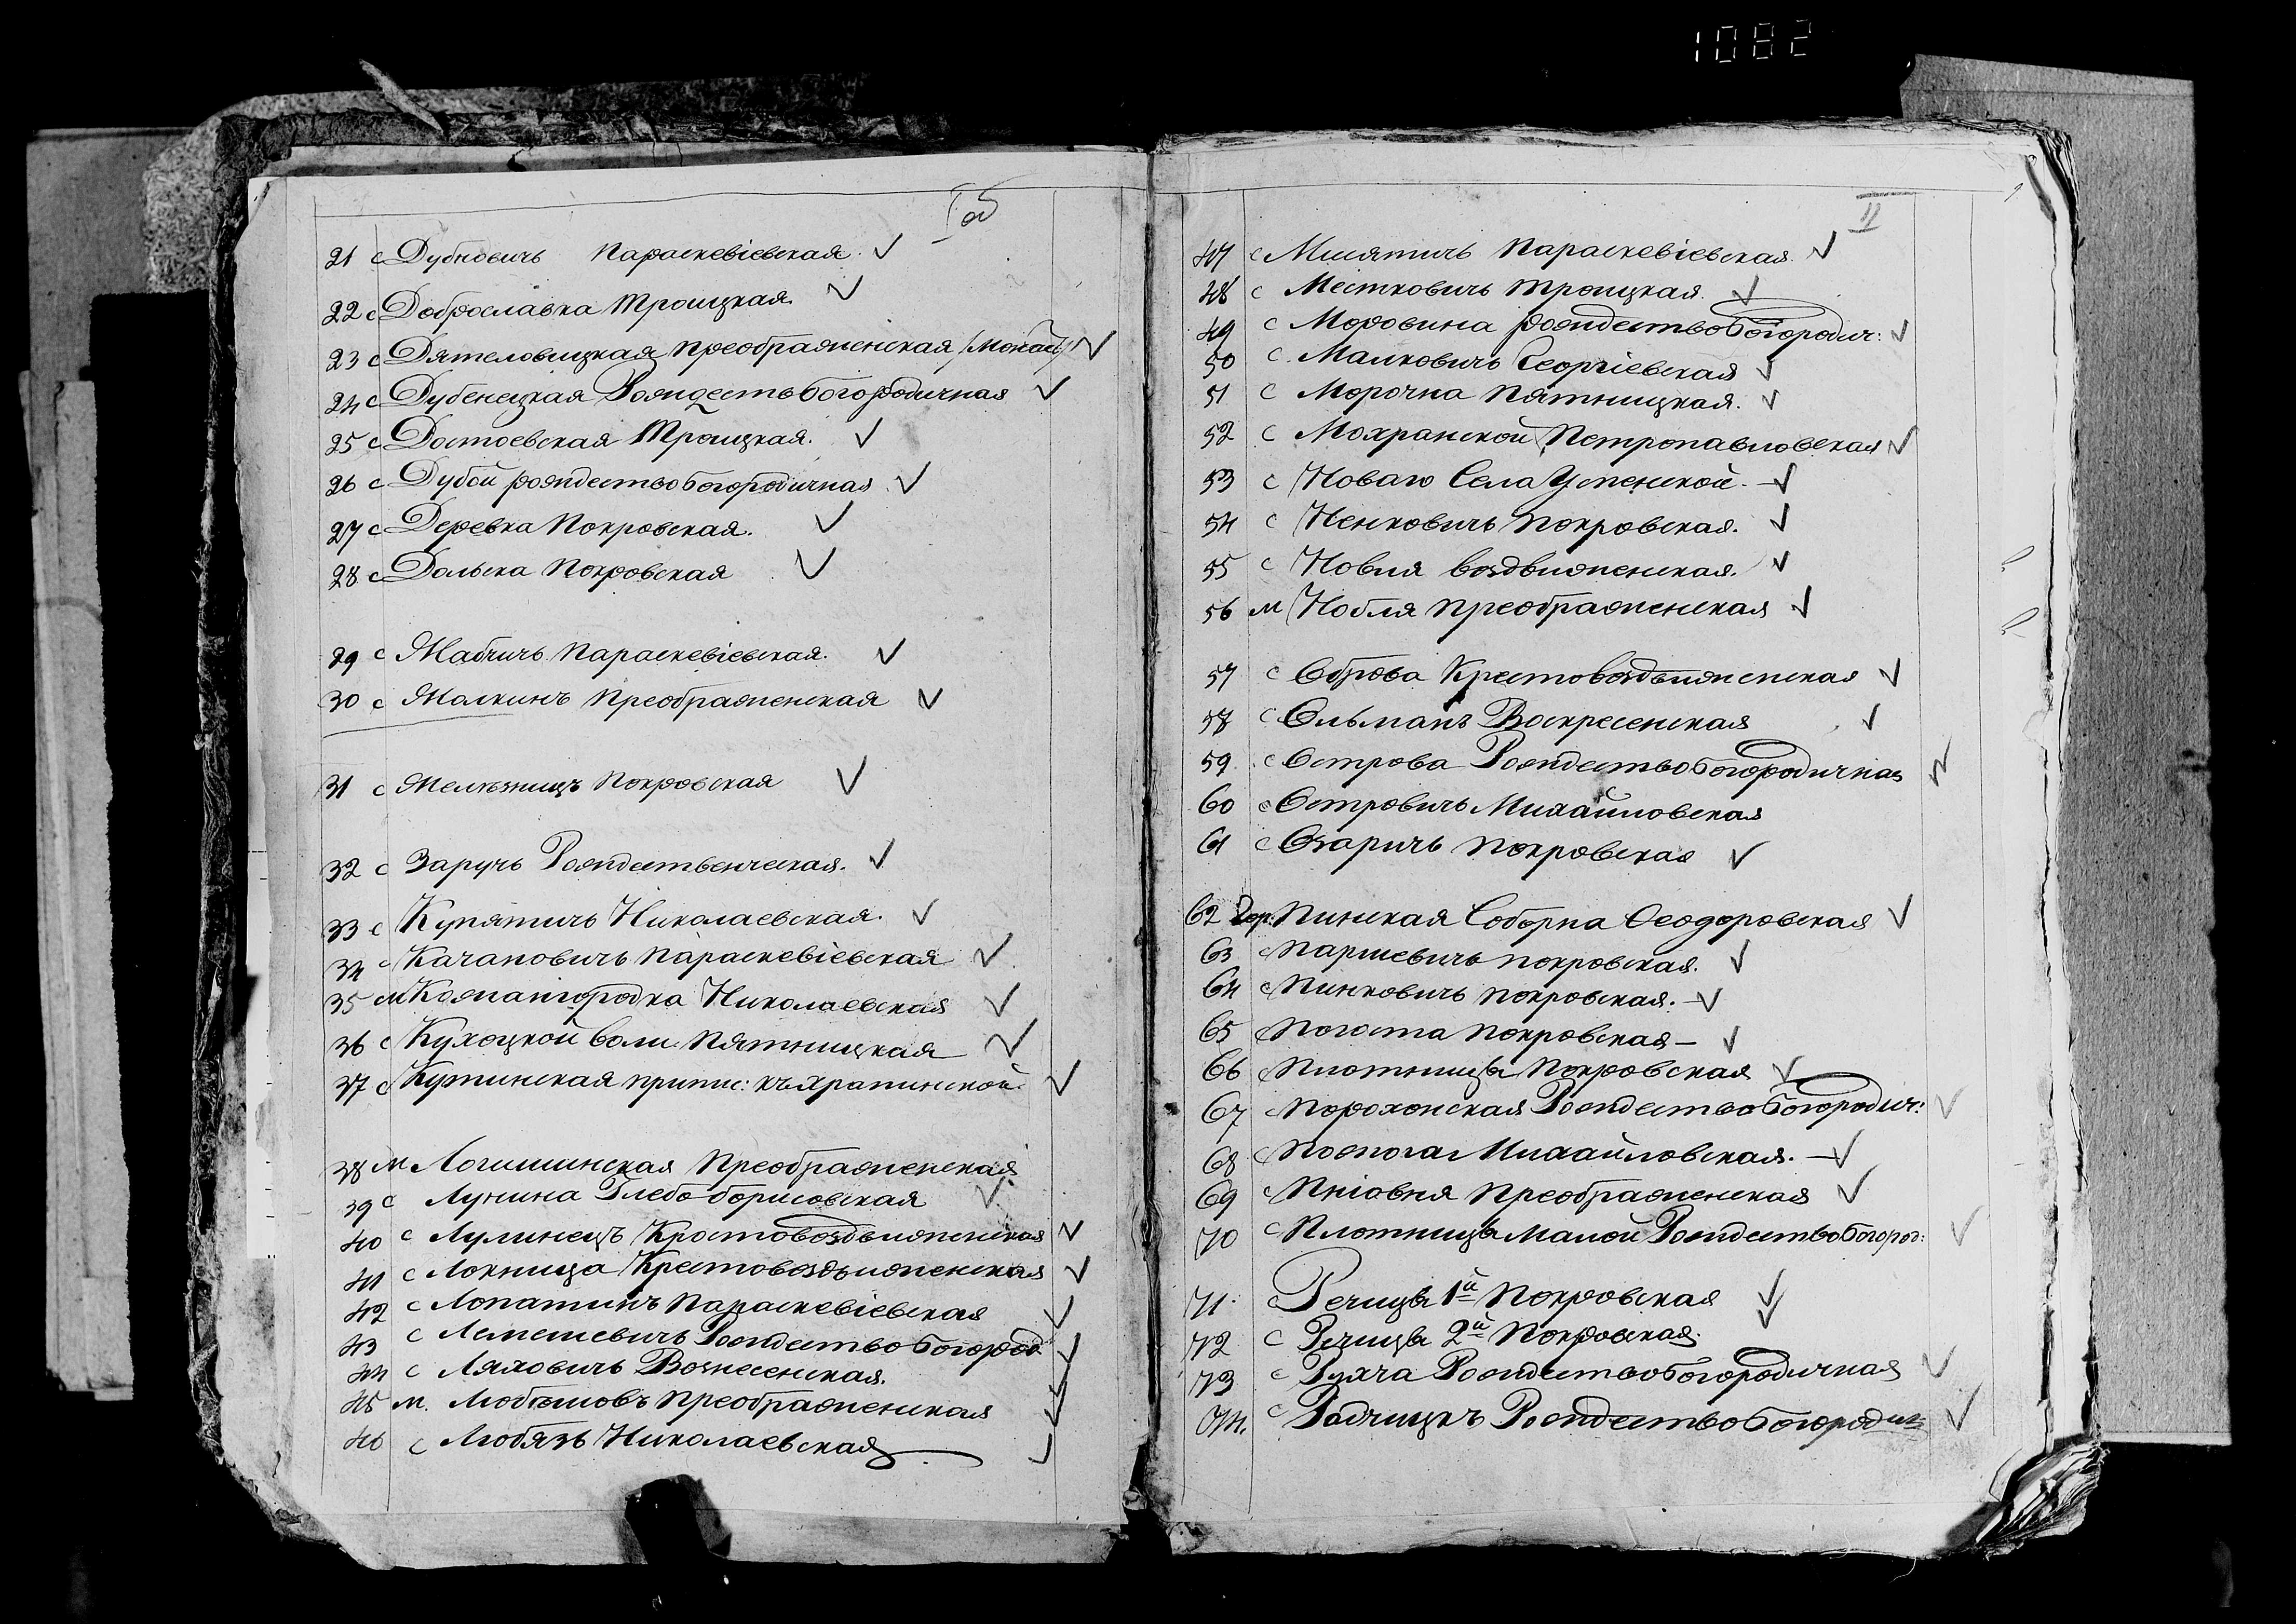 1082
I об
21 с Дубновичь Параскевіевская.
22 с Доброславка Троицкая.
23 с Дятеловицкая Преображенская /Монас/
24 с Дубенецкая Рождество Богородичная
25 с Достоевская Троицкая.
26 с Дубой рождество Богородичная
27 с Деревка Покровская.
28 с Дольска Покровская
29 с Жабчичь Параскевіевская.
30 с Жолкинъ Преображенская
31 с Желѣзницъ Покровская
32 с Заручь Рождественская.
33 с Купятичь Николаевская.
34 с Качановичь Параскевіевская
35 м Кожангородка Николаевская
36 с Кухоцкой воли Пятницкая
37 с Кутинская припис: къ храпинской
38 м Логишинская Преображенская
39 с Лунина Глебо-борисовская
40 с Лулинецъ Крестовоздвиженская
41 с Локница Крестовоздвиженская
42 с Лопатинъ Параскевіевская
43 с Лемешевичь Рождество Богород
44 с Ляховичь Вознесенская.
45 м. Любешовъ Преображенская
46 с Любязь Николаевская
II
47 с Мисятичь Параскевіевская.
48 с Местковичь Троицкая.
49 с Моровина рождество Богородич:
50 с. Малковичь Георгіевская
51 с Морочна Пятницкая.
52 с Мохранской Петропавловская
53 с Новаго Села Успенской.
54 с Ненковичь Покровская.
55 с Новля воздвиженская.
56 м Нобля Преображенская
57 с Оброва Крестовоздвиженская
58 с Ольманъ Воскресенская
59 с Острова Рождество Богородичная
60 с Островичь Михайловская
61 с Озаричь Покровская
62 Гор. Пинская Соборна Ѳеодоровская
63 с Паршевичь покровская.
64 с Пинковичь покровская.
65 с Погоста Покровская
66 с Плотницы Покровская
67 с Порохонская Рождество Богородич:
68 с Поспога Михайловская.
69 с Пніовня Преображенская
70 с Плотницы Малой Рождество Богород:
71. с Речицы 1й Покровская
72 с Речицы 2й Покровская.
73 с Рухча Рождество Богородичная
74. с Радчицкъ Рождество Богородич